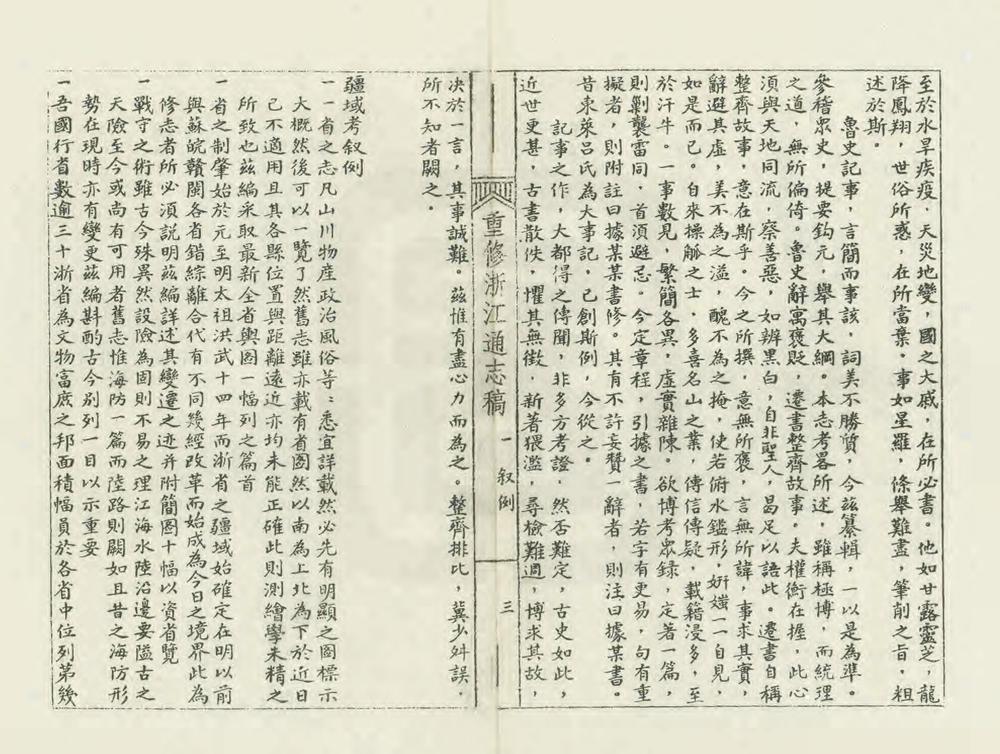 至於水旱疾疫．天災地變，國之大戚，在所必書。他如甘露靈芝，龍
降鳳翔，世俗所惑，在所當棄。事如星羅，條舉難盡，筆削之旨，粗
述於斯。
魯史記事，言簡而事該，詞美不勝質，今茲纂輯，一以是為準。
參稽眾史，提要鈎元，舉其大綱。本志考畧所述，雖稱極博，而統理
之道，無所偏倚。魯史辭寓褒貶，遷書整齊故事。夫權衡在握，此心
湏與天地同流，察善惡，如辨黑白，自非聖人，曷足以語此。遷書自稱
整齊故事，意在斯乎。今之所撰，意無所褒，言無所諱，事求其實，
辭避其虛，美不為之溢，醜不為之掩，使若俯水鑑形，妍媸一一自見，
如是而已。自來操觚之士，多喜名山之業，傳信傳疑，載籍浸多，至
於汗牛。一事數見，繁簡各異，虛實雜陳。欲博考眾錄，定著一篇，
則剿襲雷同，首湏避忌。今定章程，引據之書，若字有更易，句有重
擬者，則附註曰據某某書修。其有不許妄贊一辭者，則注曰據某書。
昔東萊呂氏為大事記，已創斯例，今從之。
記事之作，大都得之傳聞，非多方考證．然否難定，古史如此，
近世更甚，古書散佚，懼其無徵．新著猥濫，尋檢難週，博求其故，
重修浙江通志稿
一
叙例
三
決於一言，其事誠難。茲惟有盡心力而為之。整齊排比，冀少舛誤，
所不知者闕之．
疆域考叙例
一一省之志凡山川物產政治風俗等：悉宜詳載然必先有明顯之圖標示
大概然後可以一覽了然舊志雖亦載有省圖然以南為上北為下於近日
已不適用且其各縣位置與距離遠近亦均未能正確此則測繪學未精之
所致也茲編采取最新全省輿圖一幅列之篇首
一省之制肇始於元至明太祖洪武十四年而浙省之疆域始確定在明以前
與蘇皖贛閩各省錯綜離合代有不同幾經改革而始成為今日之境界此為
修志者所必湏説明茲編詳述其變遷之迹并附簡圖十幅以資省覽
一戰守之術雖古今殊異然設險為固則不易之理江海水陸沿邊要隘古之
天險至今或尚有可用者舊志惟海防一篇而陸路則闕如且昔之海防形
勢在現時亦有變更茲編斟酌古今别列一目以示重要
一吾國行省數逾三十浙省為文物富庶之邦面積幅員於各省中位列第幾